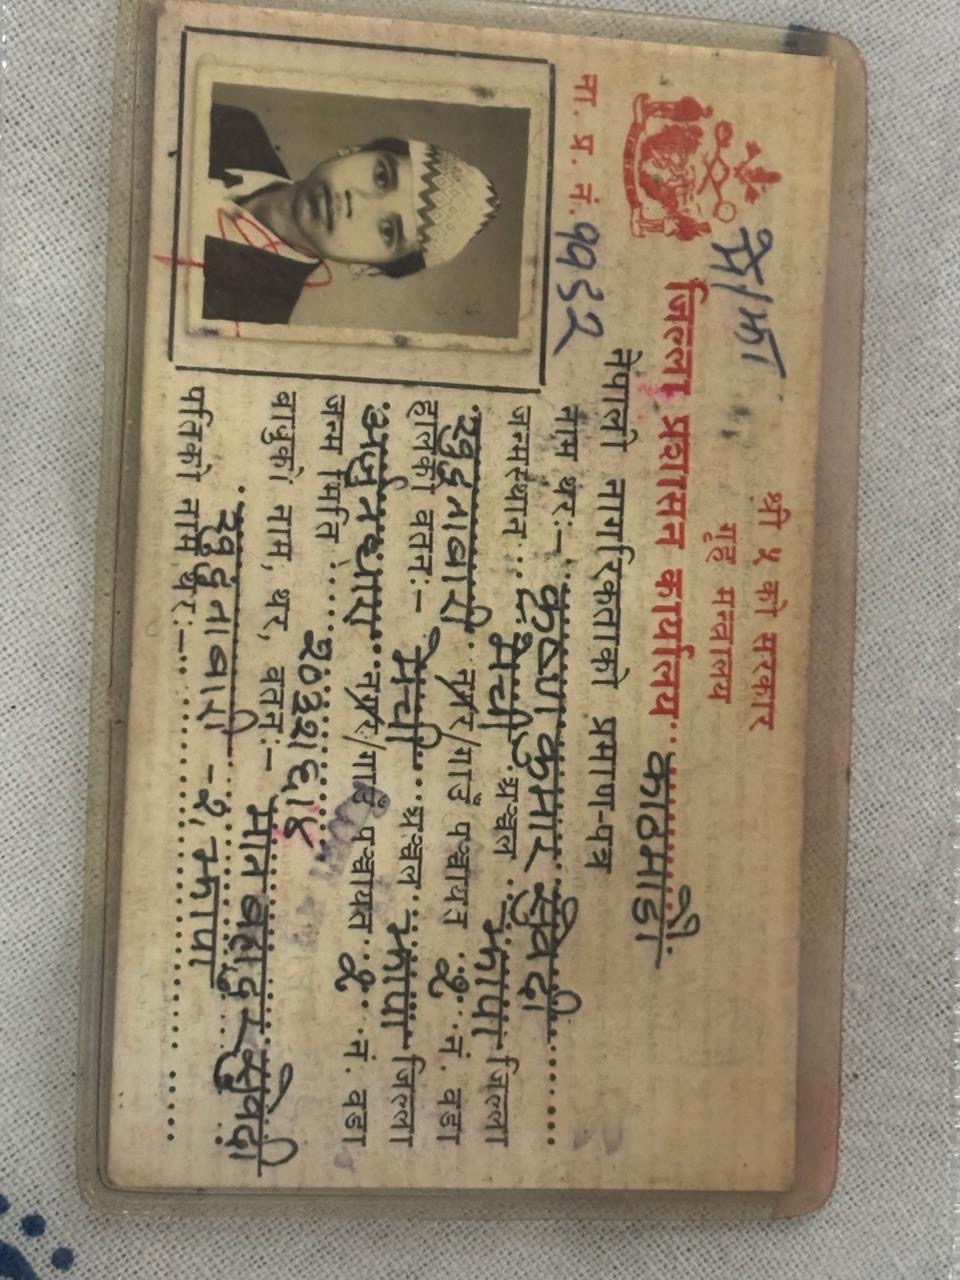 श्री ५ को सरकार
गृह मन्त्रालय
जिल्ला प्रशासन कार्यालय काठमाडौं
ना. प्र. नं. ११३२
नेपाली नागरिकताको प्रमाण-पत्र
नाम थर:- कृष्ण कुमार सुवेदी
जन्मस्थान मेची अञ्चल झापा जिल्ला
खुदुनाबारी नगर/गाउँ पञ्चायत २ नं. वडा
हालको वतन:- मेची अञ्चल झापा जिल्ला
अर्जुनधारा नगर/गाउँ पञ्चायत २ नं. वडा
जन्म मिति २०३२।६।४
बाबुको नाम, थर, वतन:- मान बहादुर सुवेदी
खुदुनाबारी -२, झापा
पतिको नाम थर:-